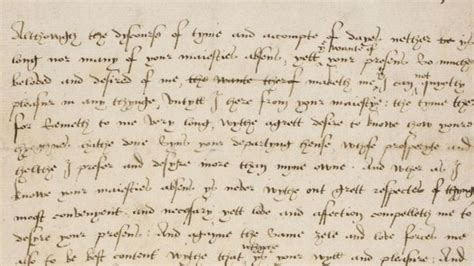 Althowgth the discourse of tyme and accompte of dayes nether ys
long nor many of your maiesties absens, yett ye wante of your presens so muche
beloved and desired of me, the wante therof maketh me, I can not quyetly
pleasur in any thynge, untyll I here from your maiesty: the tyme ther
for semeth to me very long, wythe a grett desire to knowe how your
hyghnes hathe done syns your departyng hense, whose prosperyte and
helthe I prefer and desyre more than myne owne. And wher as I
knowe your maiesties absens ys never wythe out grett respectes of thynges
most convenyent and necessary yett love and affection compelleth me to
desyre your presens: And agayne the same zele and love forces me
also to be best content wythe that whyche ys your wyll and pleasure: And